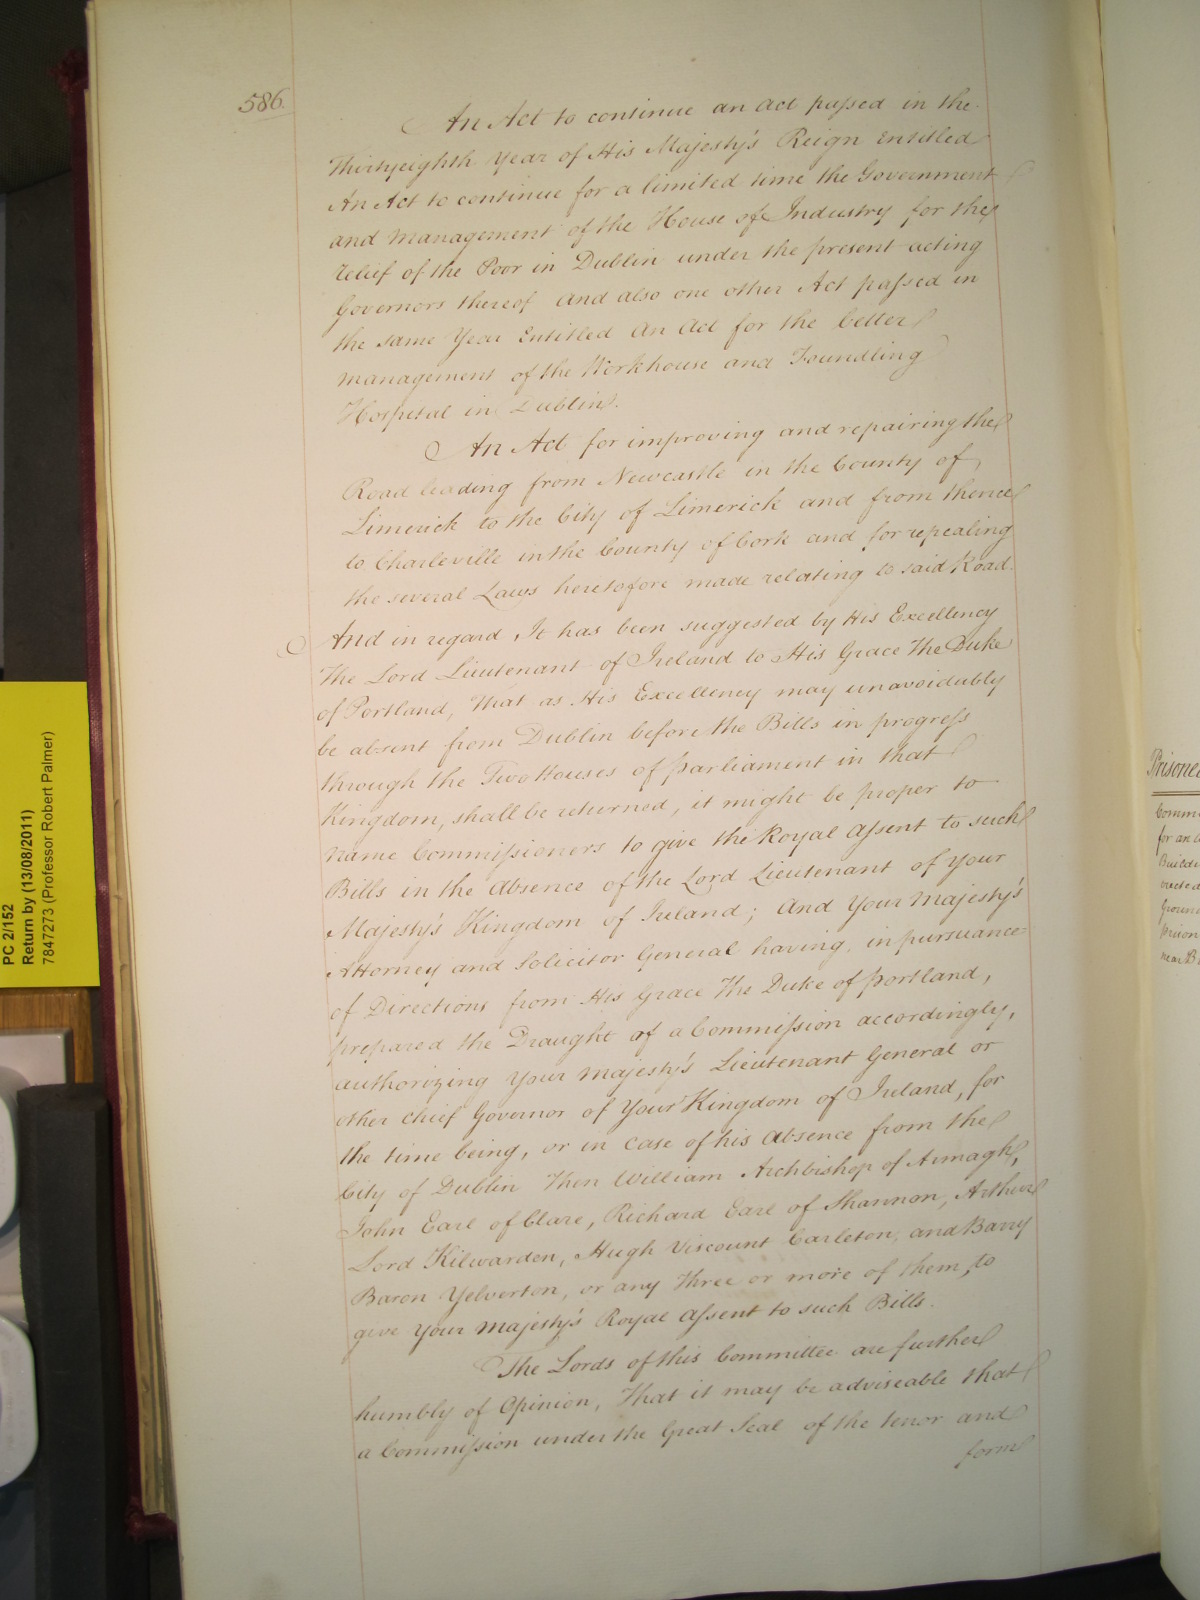 586.
An Act to continue an act passed in the
Thirtyeighth Year of His Majesty's Reign Entitled
An Act to continue for a limited time the Government
and management of the House of Industry for the
relief of the Poor in Dublin under the present acting
Governors thereof and also one other Act passed in
the same Year Entitled An Act for the better
management of the Workhouse and Foundling
Hospital in Dublin.
An Act for improving and repairing the
Road leading from Newcastle in the County of
Limerick to the City of Limerick and from thence
to Charleville in the County of Cork and for repealing
the several Laws heretofore made relating to said Road.
And in regard, It has been suggested by His Excellency
The Lord Lieutenant of Ireland to His Grace The Duke
of Portland, That as His Excellency may unavoidably
be absent from Dublin before the Bills in progress
through the Two Houses of parliament in that
Kingdom, shall be returned, it might be proper to
name Commissioners to give the Royal Assent to such
Bills in the Absence of the Lord Lieutenant of Your
Majesty's Kingdom of Ireland; And Your Majesty's
Attorney and Solicitor General having, in pursuance
of Directions from His Grace The Duke of portland,
prepared the Draught of a Commission accordingly,
authorizing Your Majesty's Lieutenant General or
other chief Governor of Your Kingdom of Ireland, for
the time being, or in case of his absence from the
City of Dublin Then William Archbishop of Armagh,
John Earl of Clare, Richard Earl of Shannon, Arthur
Lord Kilwarden, Hugh Viscount Carleton, and Barry
Baron Yelverton, or any three or more of them, to
give Your Majesty's Royal Assent to such Bills.
The Lords of this Committee are further
humbly of Opinion, That it may be adviseable that
a Commission under the Great Seal of the tenor and
form
PC 2/152
Return by (13/08/2011)
7847273 (Professor Robert Palmer)
for an
near B